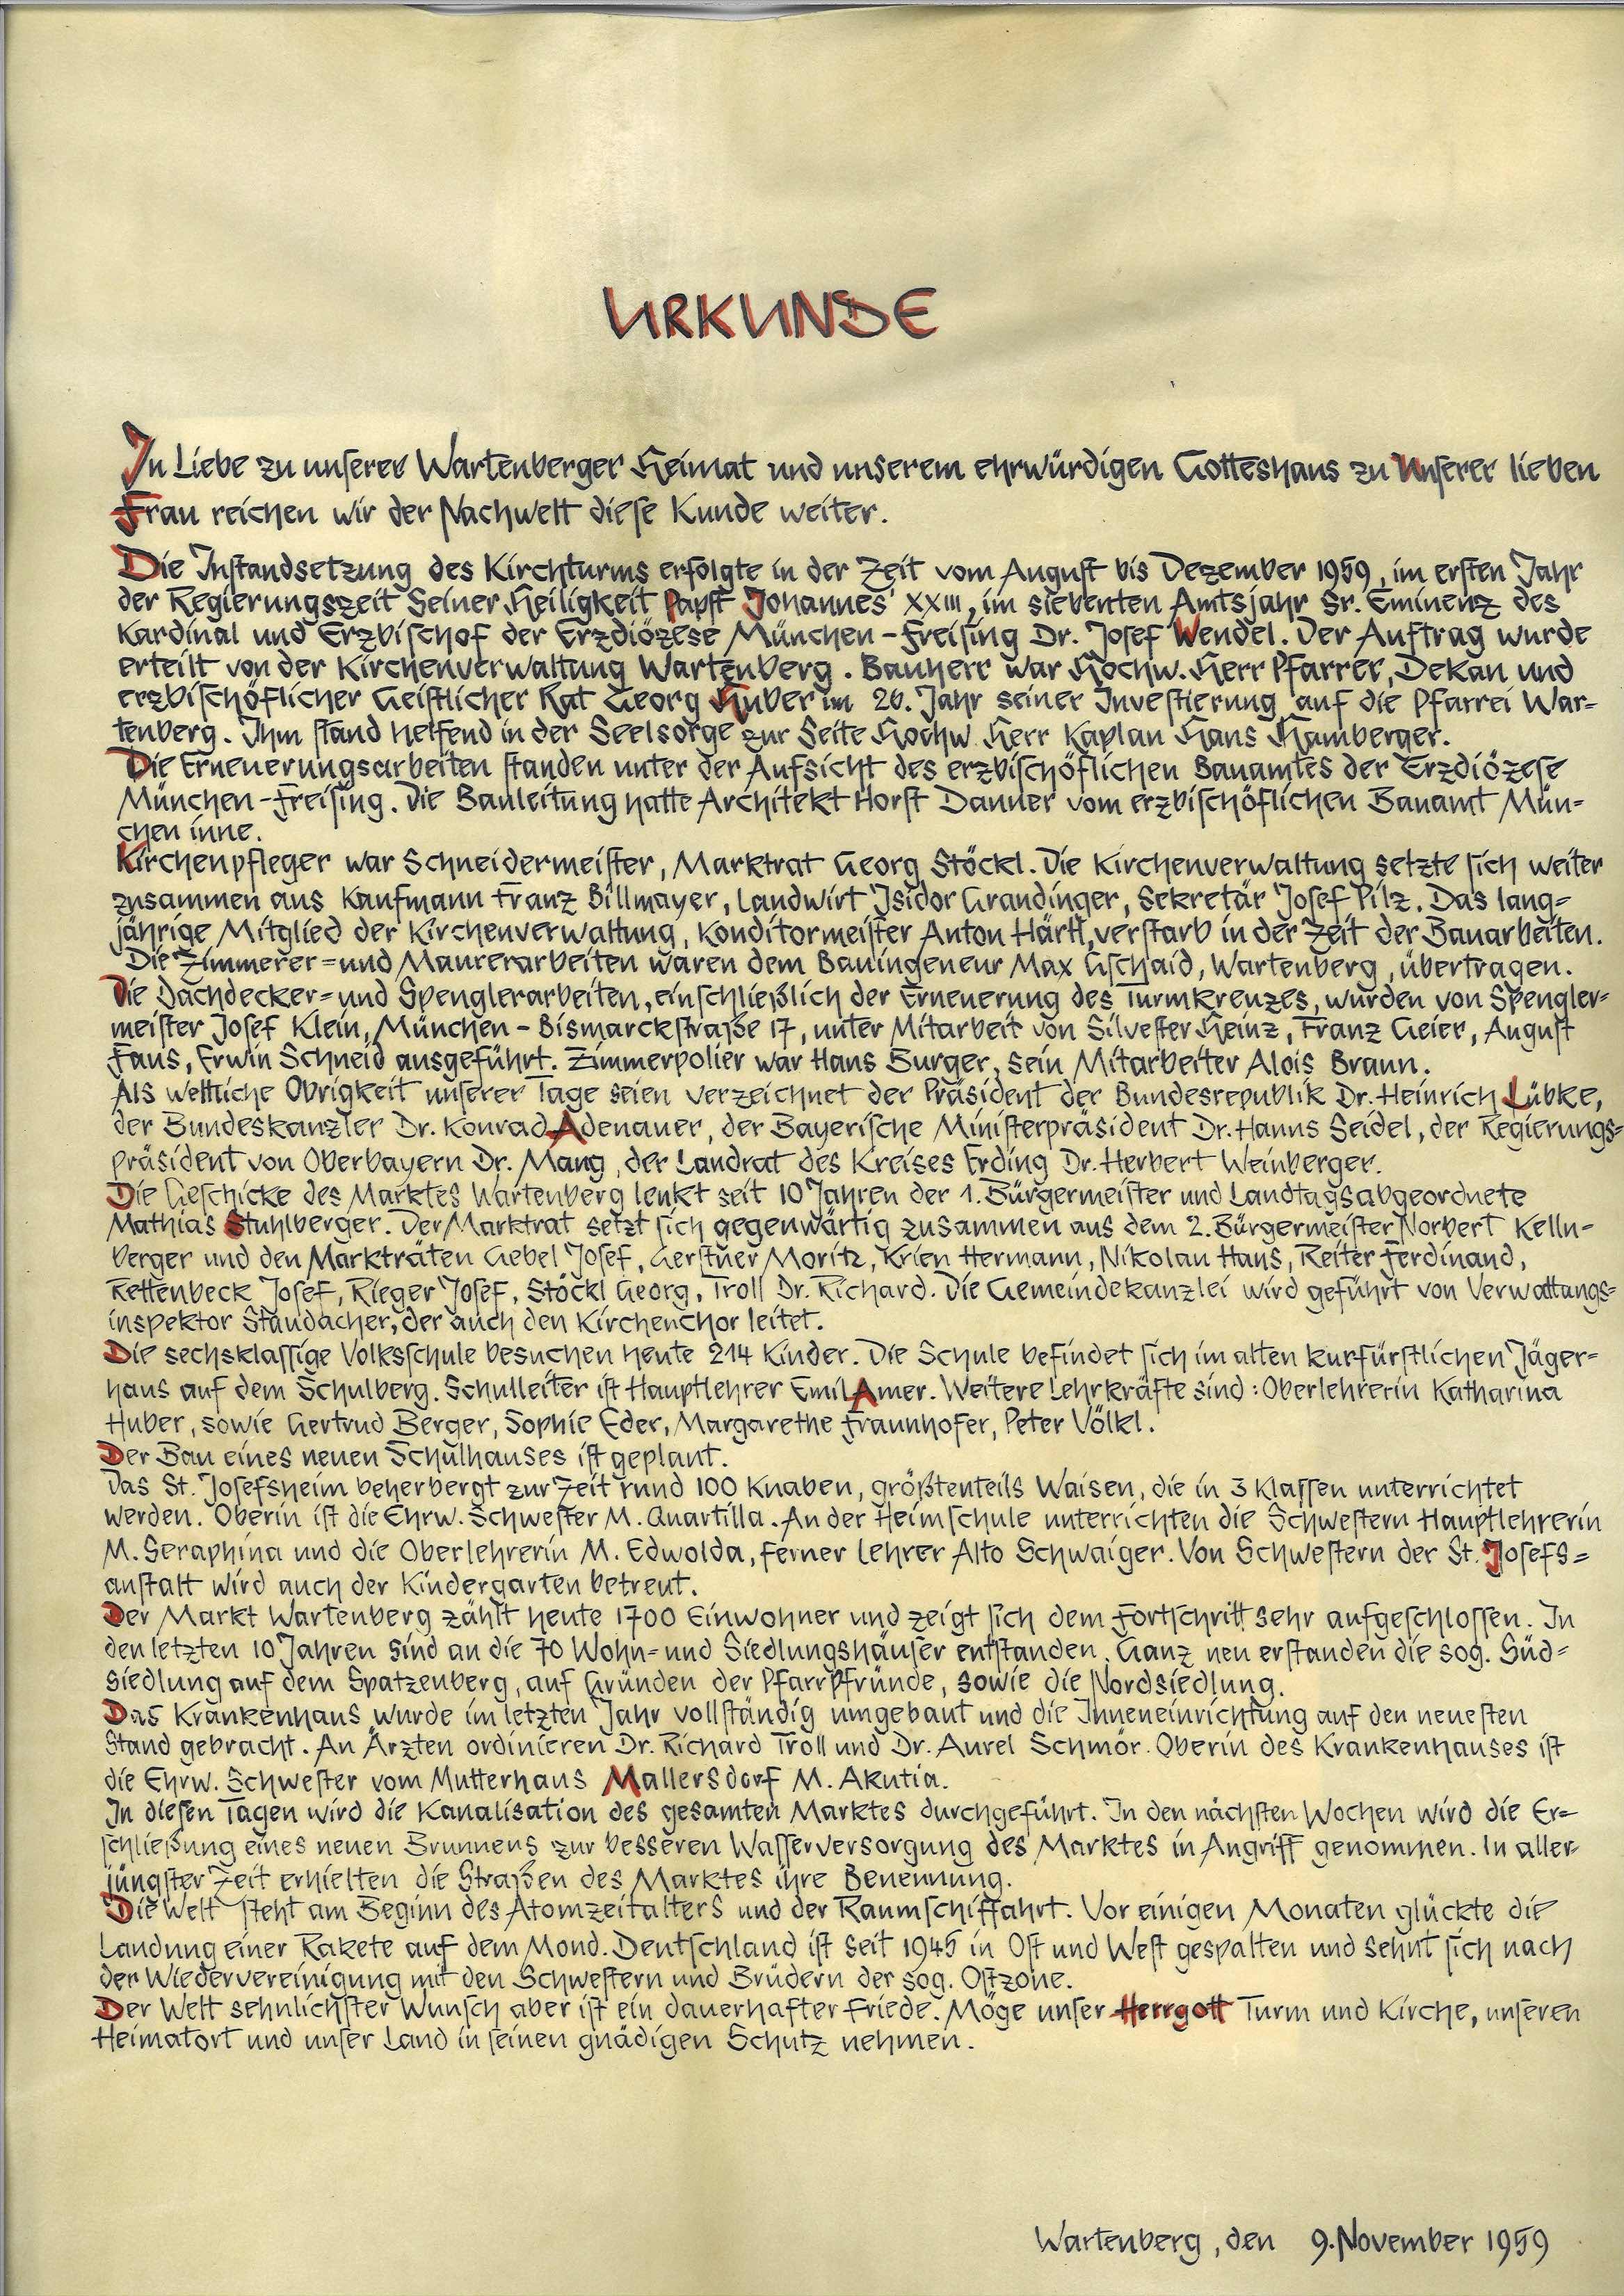 URKUNDE
In Liebe zu unserer Wartenberger Heimat und unserem ehrwürdigen Gotteshaus zu Unserer lieben
Frau reichen wir der Nachwelt diese Kunde weiter.
Die Instandsetzung des Kirchturms erfolgte in der Zeit vom August bis Dezember 1959, im ersten Jahr
der Regierungszeit Seiner Heiligkeit Papst Johannes XXIII, im siebenten Amtsjahr Sr. Eminenz des
Kardinal und Erzbischof der Erzdiözese München-Freising Dr. Josef Wendel. Der Auftrag wurde
erteilt von der Kirchenverwaltung Wartenberg. Bauherr war Hochw. Herr Pfarrer, Dekan und
erzbischöflicher Geistlicher Rat Georg Huber im 26. Jahr seiner Investierung auf die Pfarrei War-
tenberg. Ihm stand helfend in der Seelsorge zur Seite Hochw. Herr Kaplan Hans Hamberger.
Die Erneuerungsarbeiten standen unter der Aufsicht des erzbischöflichen Bauamtes der Erzdiözese
München-Freising. Die Bauleitung hatte Architekt Horst Danner vom erzbischöflichen Bauamt Mün-
chen inne.
Kirchenpfleger war Schneidermeister, Marktrat Georg Stöckl. Die Kirchenverwaltung setzte sich weiter
zusammen aus Kaufmann Franz Billmayer, Landwirt Isidor Grandinger, Sekretär Josef Pilz. Das lang=
jährige Mitglied der Kirchenverwaltung, Konditormeister Anton Härtl, verstarb in der Zeit der Bauarbeiten.
Die Zimmerer=und Maurerarbeiten waren dem Bauingeneur Max Gschaid, Wartenberg, übertragen.
Die Dachdecker=und Spenglerarbeiten, einschließlich der Erneuerung des Turmkreuzes, wurden von Spengler=
meister Josef Klein, München-Bismarckstraße 17, unter Mitarbeit von Silvester Heinz, Franz Geier, August
Faus, Erwin Schneid ausgeführt. Zimmerpolier war Hans Burger, sein Mitarbeiter Alois Braun.
Als weltliche Obrigkeit unserer Tage seien verzeichnet der Präsident der Bundesrepublik Dr. Heinrich Lübke,
der Bundeskanzler Dr. Konrad Adenauer, der Bayerische Ministerpräsident Dr. Hanns Seidel, der Regierungs=
präsident von Oberbayern Dr. Mang, der Landrat des Kreises Erding Dr. Herbert Weinberger.
Die Geschicke des Marktes Wartenberg lenkt seit 10 Jahren der 1. Bürgermeister und Landtagsabgeordnete
Mathias Stuhlberger. Der Marktrat setzt sich gegenwärtig zusammen aus dem 2. Bürgermeister Norbert Kelln-
berger und den Markträten Gebel Josef, Gerstner Moritz, Krien Hermann, Nikolau Hans, Reiter Ferdinand,
Rettenbeck Josef, Rieger Josef, Stöckl Georg, Troll Dr. Richard. Die Gemeindekanzlei wird geführt von Verwaltungs=
inspektor Staudacher, der auch den Kirchenchor leitet.
Die sechsklassige Volksschule besuchen heute 214 Kinder. Die Schule befindet sich im alten kurfürstlichen Jäger=
haus auf dem Schulberg. Schulleiter ist Hauptlehrer Emil Amer. Weitere Lehrkräfte sind: Oberlehrerin Katharina
Huber, sowie Gertrud Berger, Sophie Eder, Margarethe Fraunhofer, Peter Völkl.
Der Bau eines neuen Schulhauses ist geplant.
Das St. Josefsheim beherbergt zur Zeit rund 100 Knaben, größtenteils Waisen, die in 3 Klassen unterrichtet
werden. Oberin ist die Ehrw. Schwester M. Quartilla. An der Heimschule unterrichten die Schwestern Hauptlehrerin
M. Seraphina und die Oberlehrerin M. Edwolda, ferner Lehrer Alto Schwaiger. Von Schwestern der St. Josefs=
anstalt wird auch der Kindergarten betreut.
Der Markt Wartenberg zählt heute 1700 Einwohner und zeigt sich dem Fortschritt sehr aufgeschlossen. In
den letzten 10 Jahren sind an die 70 Wohn=und Siedlungshäuser entstanden. Ganz neu erstanden die sog. Süd=
siedlung auf dem Spatzenberg, auf Gründen der Pfarrpfründe, sowie die Nordsiedlung.
Das Krankenhaus wurde im letzten Jahr vollständig umgebaut und die Inneneinrichtung auf den neuesten
Stand gebracht. An Ärzten ordinieren Dr. Richard Troll und Dr. Aurel Schmör. Oberin des Krankenhauses ist
die Ehrw. Schwester vom Mutterhaus Mallersdorf M. Akutia.
In diesen Tagen wird die Kanalisation des gesamten Marktes durchgeführt. In den nächsten Wochen wird die Er=
schließung eines neuen Brunnens zur besseren Wasserversorgung des Marktes in Angriff genommen. In aller-
jüngster Zeit erhielten die Straßen des Marktes ihre Benennung.
Die Welt steht am Beginn des Atomzeitalters und der Raumschiffahrt. Vor einigen Monaten glückte die
Landung einer Rakete auf dem Mond. Deutschland ist seit 1945 in Ost und West gespalten und sehnt sich nach
der Wiedervereinigung mit den Schwestern und Brüdern der sog. Ostzone.
Der Welt sehnlichster Wunsch aber ist ein dauerhafter Friede. Möge unser Herrgott Turm und Kirche, unseren
Heimatort und unser Land in seinen gnädigen Schutz nehmen.
Wartenberg, den 9. November 1959